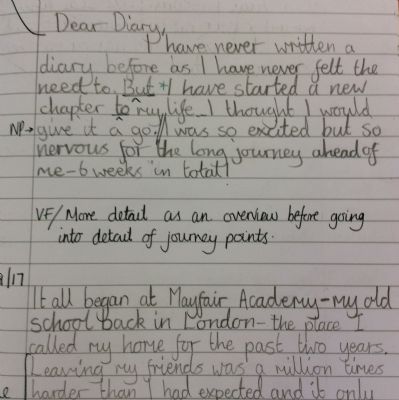 Dear Diary,
I have never written a
diary before as I have never felt the
need to. But I have started a new
chapter to my life I thought I would
NP→ give it a go. // I was so excited but so
nervous for the long journey ahead of
me-6 weeks in total!
VF/ More detail as an overview before going
into detail of journey points.
/17
It all began at Mayfair Academy-my old
school back in London-the place I
called my home for the past two years.
Leaving my friends was a million times
harder than I had expected and it only